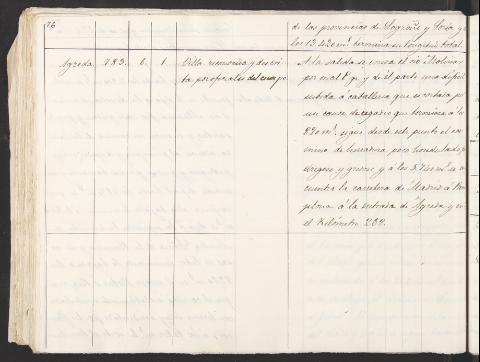 76
de las provincias de Logroño y Soria, y á
los 13.420 m.s termina su longitud total.
Agreda. 783. 6. 1. Villa reconocida y descri-
ta por oficiales del cuerpo.
A la salida se cruza el río
por mal y de él parte una dificil
subida á caballeria que se
un cauce de regadio que termina á los
820 m.s, sigue desde este punto el ca-
mino de herradura, poco ondulado, pe-
dregoso y á los 5740 m.s en-
cuentra la carretera de Madrid á Pam-
plona á la entrada de Agreda y en
el Kilómetro 202.